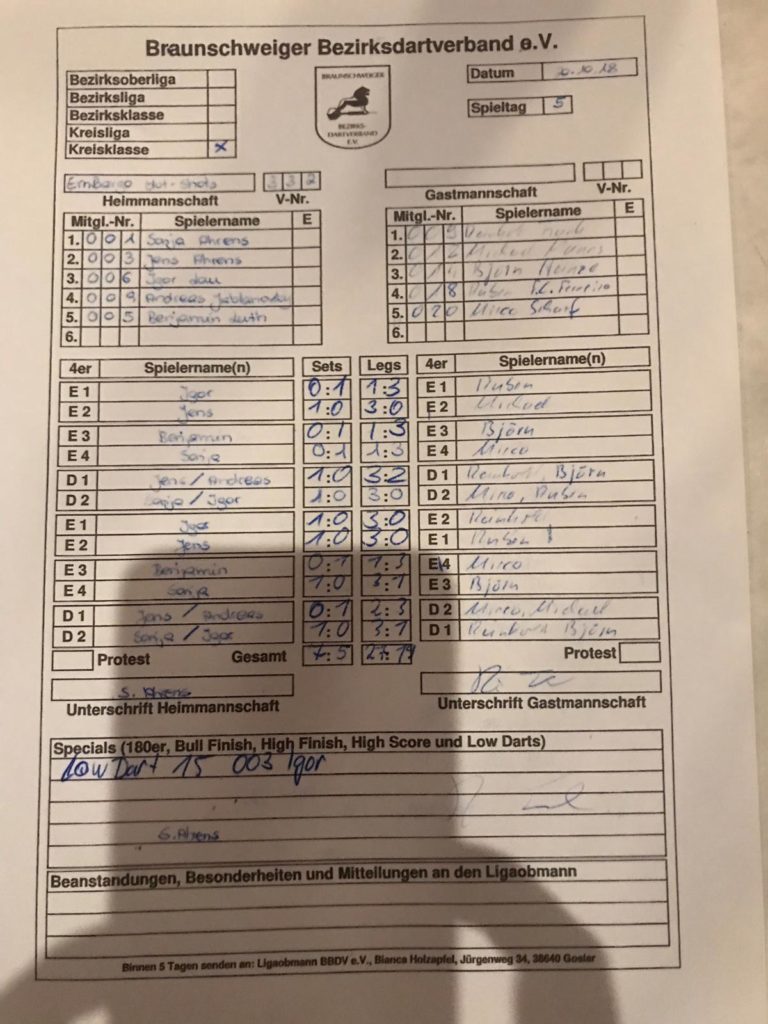 Braunschweiger Bezirksdartverband e.V.
Bezirksoberliga
Bezirksliga
Bezirksklasse
Kreisliga
Kreisklasse x
BRAUNSCHWEIGER
BEZIRKS-
DARTVERBAND
E.V.
Datum 20.10.18
Spieltag 5
Embargo Hot-Shots 332
Heimmannschaft V-Nr.
Gastmannschaft V-Nr.
Mitgl.-Nr. Spielername E
1. 001 Sonja Ahrens
2. 003 Jens Ahrens
3. 006 Igor
4. 009 Andreas
5. 005 Benjamin
6.
Mitgl.-Nr. Spielername E
1. 009
2. 012 Michael
3. 014 Björn
4. 018 Ruben
5. 020 Mirco Scharf
6.
4er Spielername(n) Sets Legs 4er Spielername(n)
E 1 Igor 0:1 1:3 E 1 Ruben
E 2 Jens 1:0 3:0 E 2 Michael
E 3 Benjamin 0:1 1:3 E 3 Björn
E 4 Sonja 0:1 1:3 E 4 Mirco
D 1 Jens / Andreas 1:0 3:2 D 1 Reinhold, Björn
D 2 Sonja / Igor 1:0 3:0 D 2 Mirco, Ruben
E 1 Igor 1:0 3:0 E 2 Reinhold
E 2 Jens 1:0 3:0 E 1 Ruben
E 3 Benjamin 0:1 1:3 E 4 Mirco
E 4 Sonja 1:0 3:1 E 3 Björn
D 1 Jens / Andreas 0:1 2:3 D 2 Mirco, Michael
D 2 Sonja / Igor 1:0 3:1 D 1 Reinhold Björn
Protest Gesamt 7:5 27:19 Protest
S. Ahrens
Unterschrift Heimmannschaft Unterschrift Gastmannschaft
Specials (180er, Bull Finish, High Finish, High Score und Low Darts)
Low Dart 15 003 Igor
S. Ahrens
Beanstandungen, Besonderheiten und Mitteilungen an den Ligaobmann
Binnen 5 Tagen senden an: Ligaobmann BBDV e.V., Bianca Holzapfel, Jürgenweg 34, 38640 Goslar